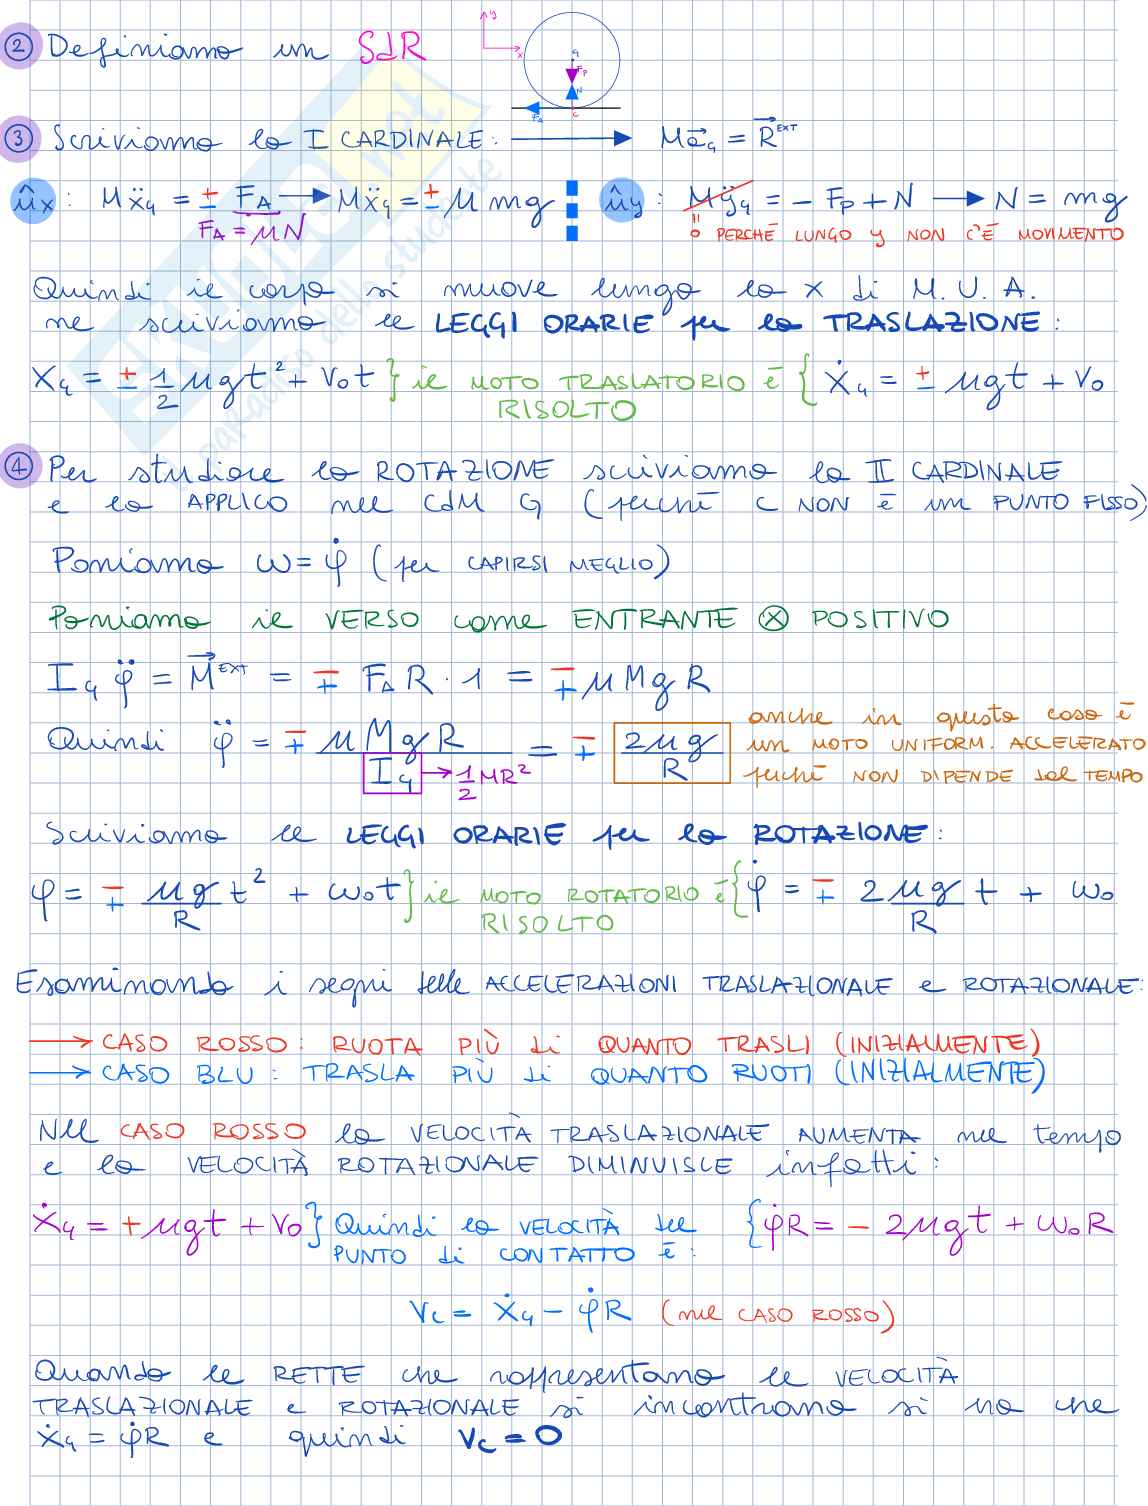 ② Definiamo un SdR
y x G Fp N FA C
③ Scriviamo la I CARDINALE: → Ma⃗G = R⃗ᴱˣᵀ
ûx : MẍG = ± FA → MẍG = ± μmg ûy : MÿG = - Fp + N → N = mg
FA = μN " 0 PERCHÈ LUNGO y NON C'È MOVIMENTO
Quindi il corpo si muove lungo la x di M.U.A.
ne scriviamo le LEGGI ORARIE per la TRASLAZIONE:
XG = ± 1/2 μgt² + V0t } il MOTO TRASLATORIO È { ẊG = ± μgt + V0
RISOLTO
④ Per studiare la ROTAZIONE scriviamo la II CARDINALE
e la APPLICO nel CdM G (perché C NON È un PUNTO FISSO)
Poniamo ω = φ̇ (per CAPIRSI MEGLIO)
Poniamo il VERSO come ENTRANTE ⊗ POSITIVO
IG φ̈ = M⃗ᴱˣᵀ = ∓ FA R · 1 = ∓ μMgR
Quindi φ̈ = ∓ μMgR / IG → 1/2 MR² = ∓ 2μg / R
anche in questo caso è
un MOTO UNIFORM. ACCELERATO
perché NON DIPENDE dal TEMPO
Scriviamo le LEGGI ORARIE per la ROTAZIONE:
φ = ∓ μg/R t² + ω0t } il MOTO ROTATORIO È { φ̇ = ∓ 2μg/R t + ω0
RISOLTO
Esaminando i segni delle ACCELERAZIONI TRASLAZIONALE e ROTAZIONALE:
→ CASO ROSSO: RUOTA PIÙ di QUANTO TRASLI (INIZIALMENTE)
→ CASO BLU: TRASLA PIÙ di QUANTO RUOTI (INIZIALMENTE)
Nel CASO ROSSO la VELOCITÀ TRASLAZIONALE AUMENTA nel tempo
e la VELOCITÀ ROTAZIONALE DIMINUISCE infatti:
ẊG = +μgt + V0 } Quindi la VELOCITÀ del { φ̇R = - 2μgt + ω0R
PUNTO di CONTATTO È:
VC = ẊG - φ̇R (nel CASO ROSSO)
Quando le RETTE che rappresentano le VELOCITÀ
TRASLAZIONALE e ROTAZIONALE si incontrano si ha che
ẊG = φ̇R e quindi VC = 0